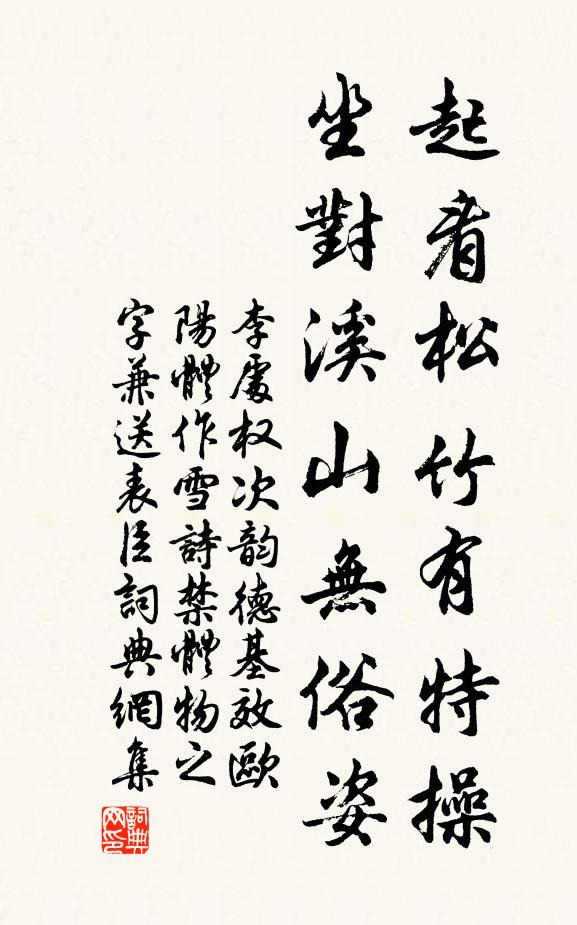 起看松竹有特操
坐對溪山無俗姿
李處权次韵德基效歐
陽體作雪詩禁體物之
字兼送表臣詞典網集
詞典
网印